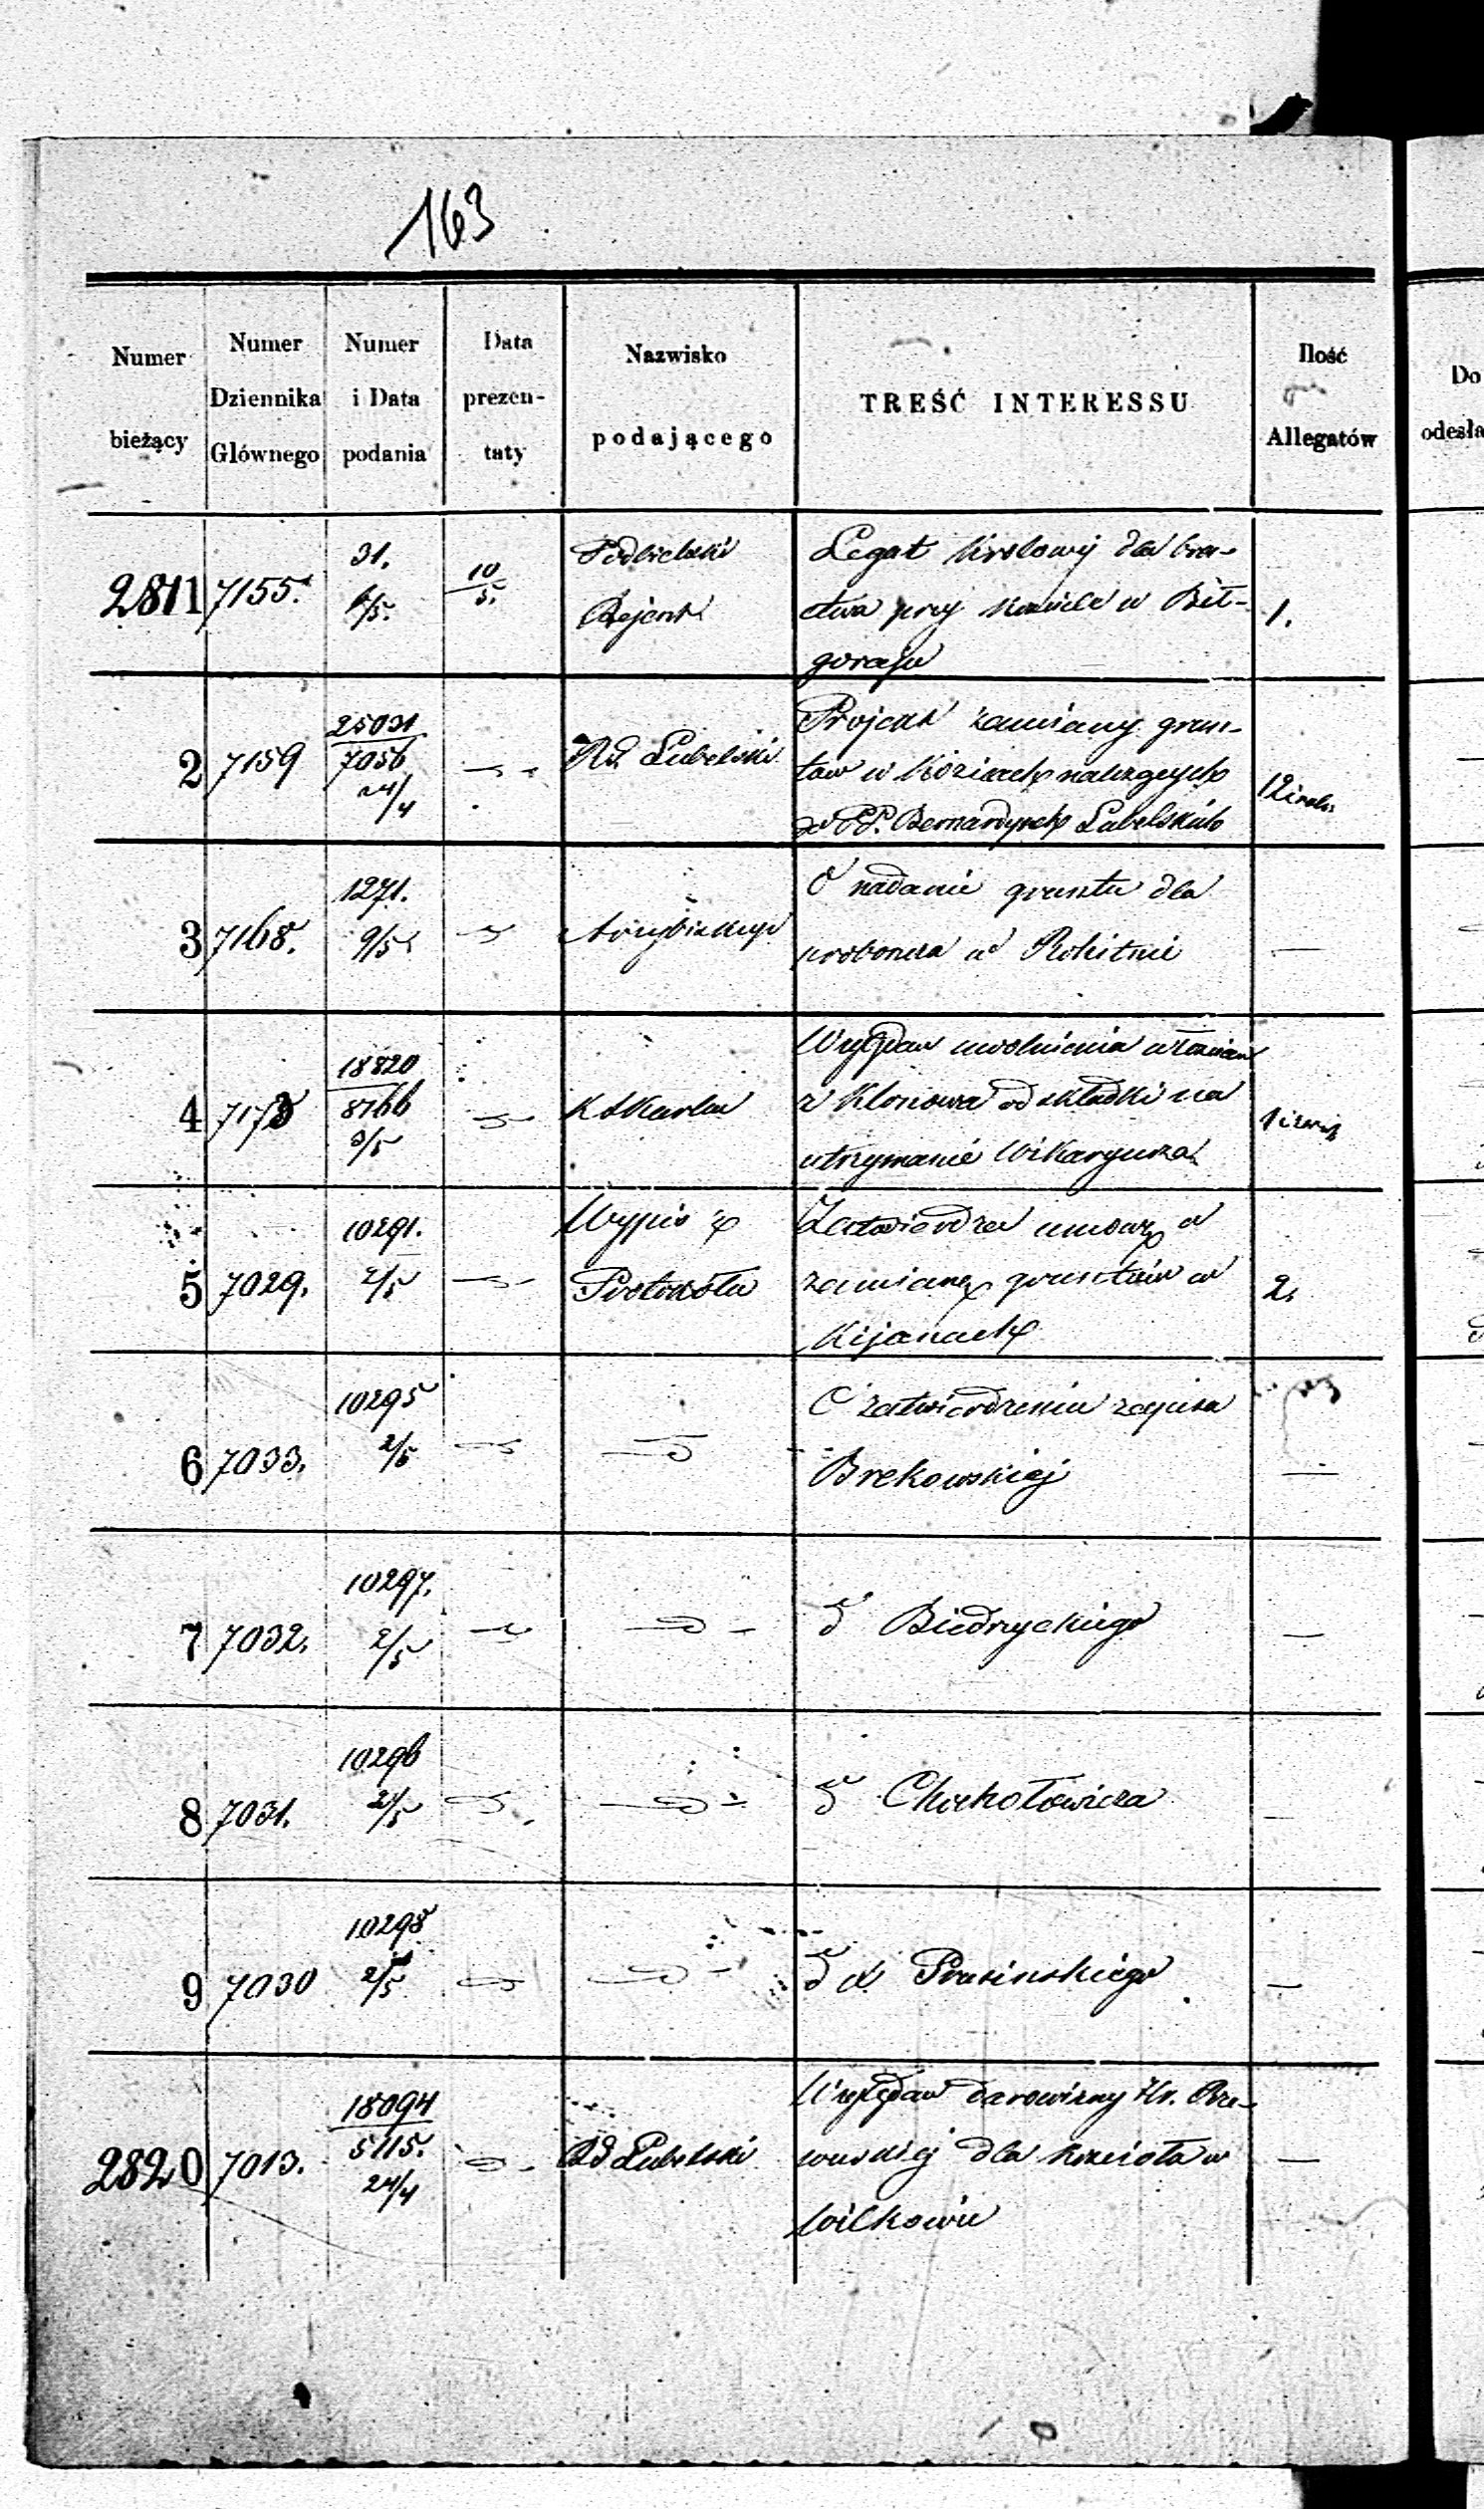 163
Numer bieżący
Numer Dziennika Głównego
Numer i Data podania
Data prezen- taty
Nazwisko podającego
TREŚĆ INTERESSU
Ilość Allegatów
Do odesła
2811 7155. 31. 6/5. 10/5. Podbielski Rejent
Legat Królowy dla bra-
ctwa przy kościele w Bił-
goraju
1.
2 7159 25031/7056 24/4 Rd. Lubelski
Projekt zamiany grun-
tów w Kozicach należących
do PP. Bernardynek Lubelskich
12
3 7168. 1271. 9/5 Arcybiskup
O nadanie gruntu dla
proboszcza w Rokitnie
—
4 7173 18820/8766 3/5
Względem uwolnienia włościan
z Klonowa od składki na
utrzymanie Wikaryusza
1
5 7029. 10291. 2/5 Wypis z Protokółu
Zatwierdza umowę o
zamianę gruntów w
Kijanach
2.
6 7033. 10295 2/5
O zatwierdzeniu zapisu
Brekowskiej
—
7 7032. 10297. 2/5
d Biedrzyckiego
—
8 7031. 10296 2/5
d Chochołowicza
—
9 7030 10298 2/5
d Prusinskiego
—
2820 7013. 18094/5115. 24/4 Rd Lubelski
Względem darowizny Hr. Rze-
wuskiej dla kościoła w
Wilkowie
—